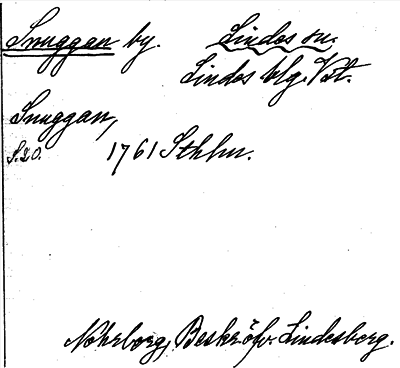 Snuggan by. Lindes sn.
Lindes blg. Vstl.
Snuggan,
S.20. 1761 Sthlm.
Nohrborg, Beskr. öfv. Lindesberg.